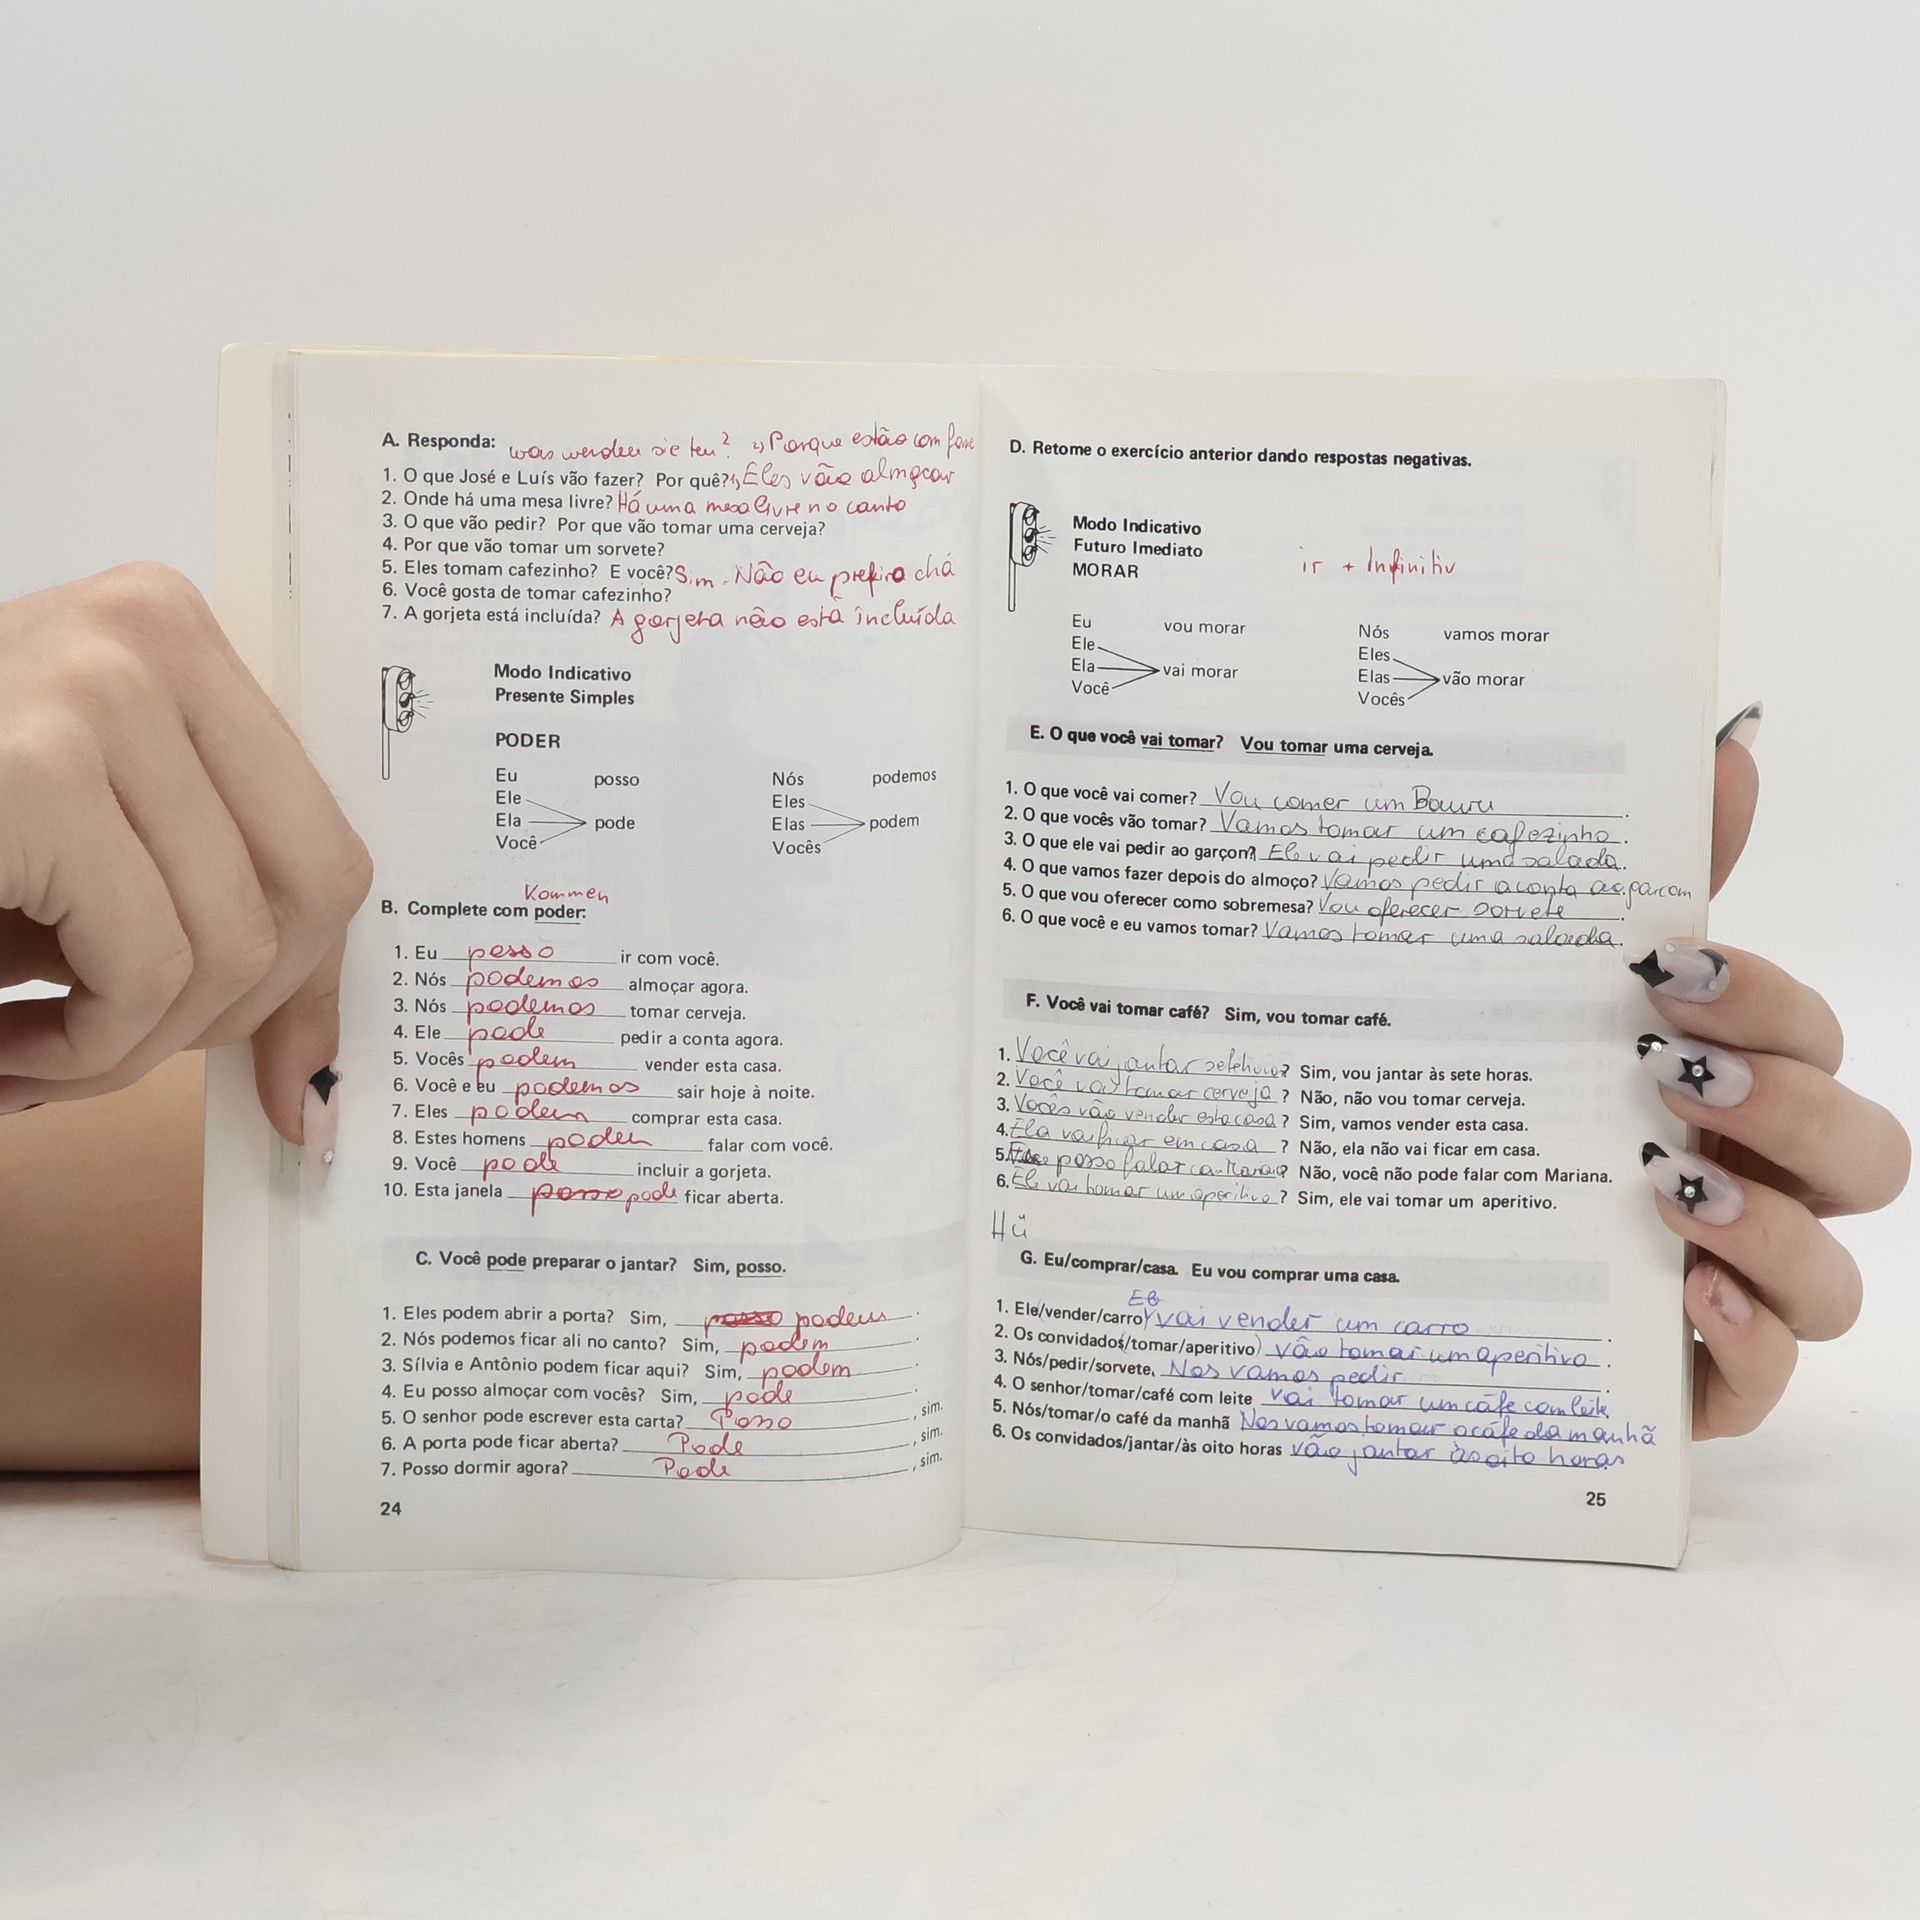 A. Responda: was werden sie tun? 2, Porque estão com fome
1. O que José e Luís vão fazer? Por quê? 1, Eles vão almoçar
2. Onde há uma mesa livre? Há uma mesa livre no canto
3. O que vão pedir? Por que vão tomar uma cerveja?
4. Por que vão tomar um sorvete?
5. Eles tomam cafezinho? E você? Sim. Não eu prefiro chá
6. Você gosta de tomar cafezinho?
7. A gorjeta está incluída? A gorjeta não está incluída
Modo Indicativo
Presente Simples
PODER
Eu posso
Ele
Ela pode
Você
Nós podemos
Eles
Elas podem
Vocês
Kommen
B. Complete com poder:
1. Eu posso ir com você.
2. Nós podemos almoçar agora.
3. Nós podemos tomar cerveja.
4. Ele pode pedir a conta agora.
5. Vocês podem vender esta casa.
6. Você e eu podemos sair hoje à noite.
7. Eles podem comprar esta casa.
8. Estes homens podem falar com você.
9. Você pode incluir a gorjeta.
10. Esta janela posso pode ficar aberta.
C. Você pode preparar o jantar? Sim, posso.
1. Eles podem abrir a porta? Sim, posso podem.
2. Nós podemos ficar ali no canto? Sim, podem.
3. Sílvia e Antônio podem ficar aqui? Sim, podem.
4. Eu posso almoçar com vocês? Sim, pode.
5. O senhor pode escrever esta carta? Posso, sim.
6. A porta pode ficar aberta? Pode, sim.
7. Posso dormir agora? Pode, sim.
24
D. Retome o exercício anterior dando respostas negativas.
Modo Indicativo
Futuro Imediato
MORAR
ir + Infinitiv
Eu vou morar
Ele
Ela vai morar
Você
Nós vamos morar
Eles
Elas vão morar
Vocês
E. O que você vai tomar? Vou tomar uma cerveja.
1. O que você vai comer? Vou comer um Bauru.
2. O que vocês vão tomar? Vamos tomar um cafezinho.
3. O que ele vai pedir ao garçon? Ele vai pedir uma salada.
4. O que vamos fazer depois do almoço? Vamos pedir a conta ao garcom
5. O que vou oferecer como sobremesa? Vou oferecer sorvete.
6. O que você e eu vamos tomar? Vamos tomar uma salada.
F. Você vai tomar café? Sim, vou tomar café.
1. Você vai jantar sete horas? Sim, vou jantar às sete horas.
2. Você vai tomar cerveja? Não, não vou tomar cerveja.
3. Vocês vão vender esta casa? Sim, vamos vender esta casa.
4. Ela vai ficar em casa? Não, ela não vai ficar em casa.
5. posso falar com Mariana? Não, você não pode falar com Mariana.
6. Ele vai tomar um aperitivo? Sim, ele vai tomar um aperitivo.
Hü
G. Eu/comprar/casa. Eu vou comprar uma casa.
1. Ele/vender/carro Ele vai vender um carro.
2. Os convidados/tomar/aperitivo) vão tomar um aperitivo.
3. Nós/pedir/sorvete. Nos vamos pedir.
4. O senhor/tomar/café com leite vai tomar um cáfe com leite.
5. Nós/tomar/o café da manhã Nos vamos tomar o cáfe da manhã
6. Os convidados/jantar/às oito horas vão jantar às oito horas
25